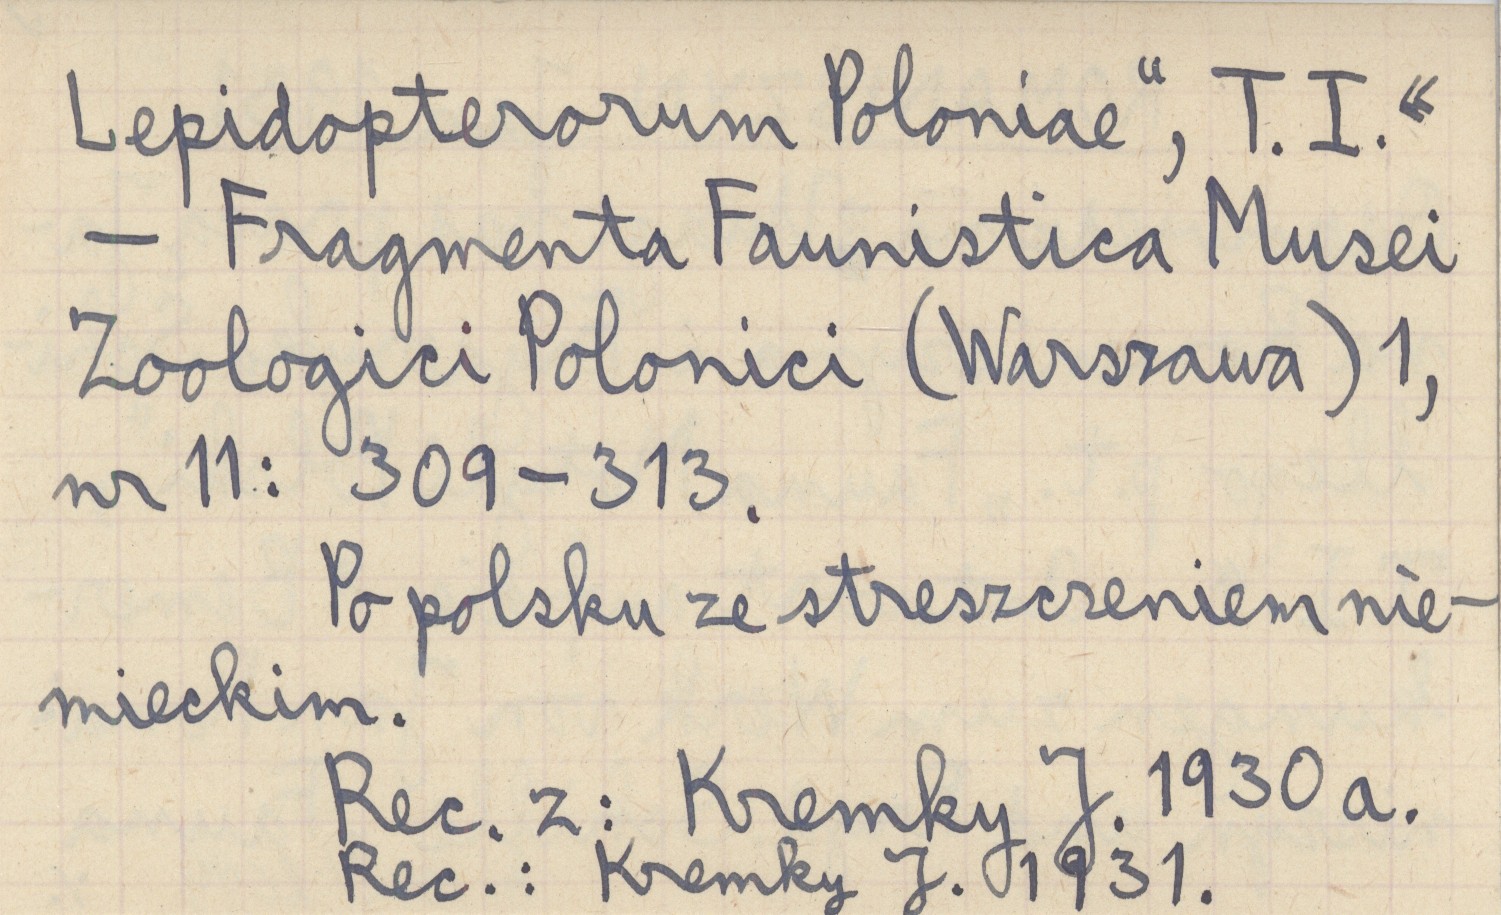 Lepidopterorum Poloniae“, T. I.“
— Fragmenta Faunistica Musei
Zoologici Polonici (Warszawa) 1,
nr 11: 309–313.
Po polsku ze streszczeniem nie-
mieckim.
Rec. z: Kremky J. 1930 a.
Rec.: Kremky J. 1931.